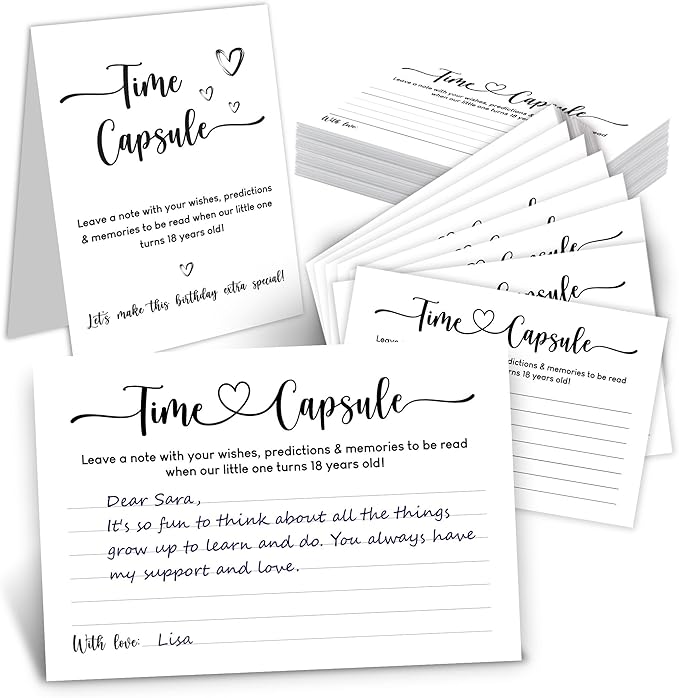 Time
Capsule
Leave a note with your wishes, predictions
& memories to be read when our little one
turns 18 years old!
Let's make this birthday extra special!
Time Capsule
Leave a note with your wishes, predictions
when our little one turns 18 years old!
to be read
With love:
Time Capsule
Leave
predictions & memories to be read
turns 18 years old!
Time Capsule
Leave a note with your wishes, predictions & memories to be read
when our little one turns 18 years old!
Dear Sara,
It's so fun to think about all the things
grow up to learn and do. You always have
my support and love.
With love: Lisa